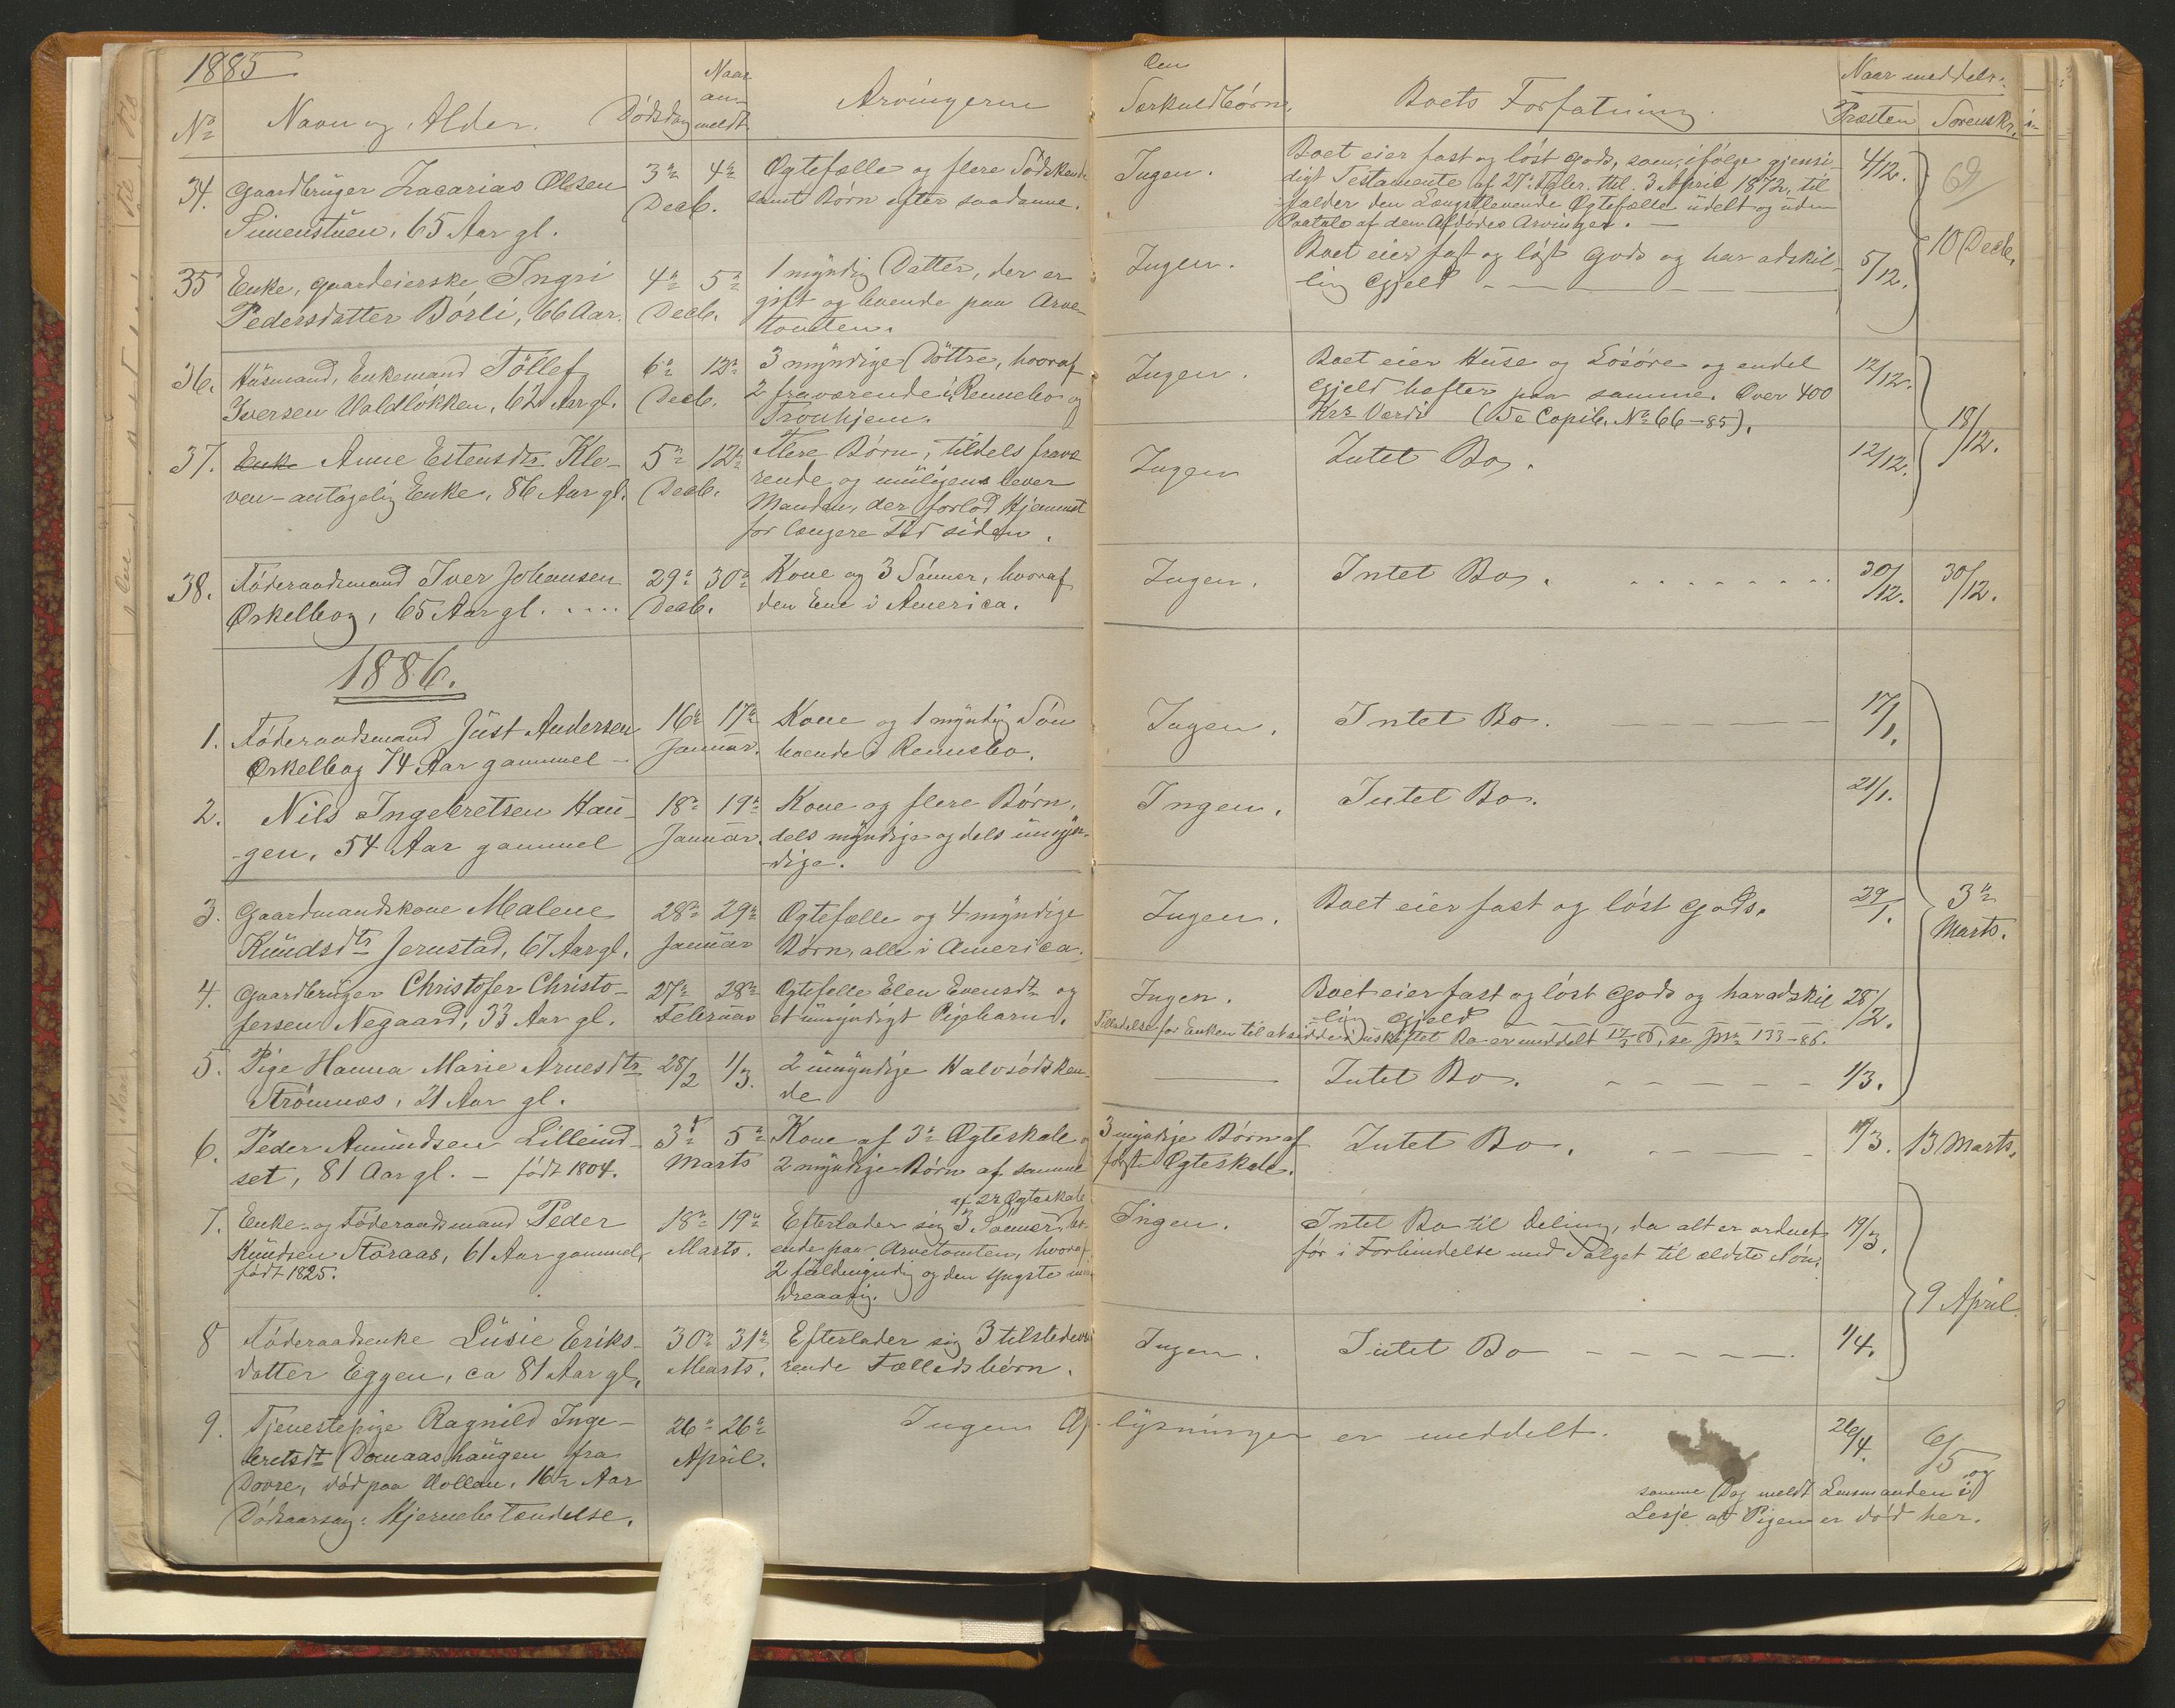 1885
No Navn og Alder. Dödsdag Naar an- meldt Arvingerne Om Særkuldbörn. Boets Forfatning. Naar meddelt. Præsten Sorenskr.
34. Gaardbruger Zacarias Olsen
Simenstuen, 65 Aar gl.
3die 4de
Decb.
Ægtefælle og flere Södskende
samt Börn efter saadanne.
Ingen.
Boet eier fast og löst Gods, som, ifölge gjensi-
digt Testamente af 27de Febr. ttl. 3 April 1872, til
falder den Længstlevende Ægtefælle udelt og uden
Paatale af den Afdödes Arvinger. —
4/12.
69
35 Enke, gaardeierske Ingri
Pedersdatter Börli, 66 Aar.
4de 5te
Decb.
1 myndig Datter, der er
gift og boende paa Arve-
tomten.
Ingen.
Boet eier fast og löst Gods og har adskil-
lig Gjeld
5/12.
10 Decb.
36. Husmand, Enkemand Töllef
Iversen Voldlökken, 62 Aar gl.
6te 12te
Decb.
3 myndige Döttre, hvoraf
2 fraværende i Rennebo og
Tronhjem.
Ingen.
Boet eier Huse og Lösöre og endel
Gjeld hefter paa samme. Over 400
Krs Værdi (Se Copib. No 66-85).
12/12.
37. Enke Anne Estensdtr Kle-
ven - antagelig Enke, 86 Aar gl.
5te 12te
Decb.
Flere Börn, tildels fravæ
rende og muligens lever
Manden, der forlod Hjemmet
for længere Tid siden.
Ingen
Intet Bo.
12/12.
18/12.
38. Föderaadsmand Iver Johansen
Örkelbog, 65 Aar gl.
29de 30te
Decb.
Kone og 3 Sönner, hvoraf
den Ene i America.
Ingen.
Intet Bo.
30/12.
30/12.
1886.
1. Föderaadsmand Just Andersen
Örkelbog 74 Aar gammel
16de 17de
Januar.
Kone og 1 myndig Sön
boende i Rennebo.
Ingen.
Intet Bo.
17/1.
2. Nils Ingebretsen Hau-
-gen, 54 Aar gammel
18de 19de
Januar.
Kone og flere Börn,
dels myndige og dels umyn-
-dige.
Ingen.
Intet Bo.
21/1.
3. Gaardmandskone Malene
Knudsdtr Jerustad, 67 Aar gl.
28de 29de
Januar
Ægtefælle og 4 myndige
Börn, alle i America.
Ingen.
Boet eier fast og löst Gods.
29/1.
3de
Marts.
4. Gaardbruger Christofer Christo-
fersen Negaard, 33 Aar gl.
27de 28de
Februar
Ægtefelle Elen Evensdtr og
et umyndigt Pigebarn.
Ingen.
Boet eier fast og löst Gods og har adskil
-lig Gjeld
28/2.
Tilladelse for Enken til at sidde i uskiftet Bo er meddelt 17/3 86, se Jnr 133-86.
5. Pige Hanna Marie Arnesdtr
Strömnæs, 21 Aar gl.
28/2 1/3.
2 umyndige Halvsödsken-
de
Intet Bo.
1/3.
6. Peder Amundsen Lilleind-
set, 81 Aar gl. - födt 1804.
3die 5te
Marts
Kone af 3die Ægteskab og
2 myndige Börn af samme
3 myndige Börn af
förste Ægteskab.
Intet Bo.
13 Marts.
7. Enke- og Föderaadsmand Peder
Knudsen Storaas, 61 Aar gammel,
födt 1825.
18de 19de
Marts.
af 2de Ægteskab
Efterlader sig 3 Sönner, bo-
ende paa Arvetomten, hvoraf
2 fuldmyndig og den yngste min
dreaarig.
Ingen.
Intet Bo til Deling, da alt er ordnet
för i Forbindelse med Salget til ældste Sön.
19/3.
8 Föderaadsenke Lusie Eriks-
datter Eggen, ca 81 Aar gl.
30te 31te
Marts.
Efterlader sig 3 tilstedevæ
rende Fælledsbörn.
Ingen.
Intet Bo
1/4.
9 April
9. Tjenestepige Ragnild Inge-
bretsdtr Domaashaugen fra
Dovre, död paa Vollan, 16 1/2 Aar
Dödsaarsag: Hjernebetændelse.
26de 26de
April.
Ingen Op-lysninger er meddelt.
26/4.
6/5 og
samme Dag meldt Lensmanden i
Lesje at Pigen er död her.